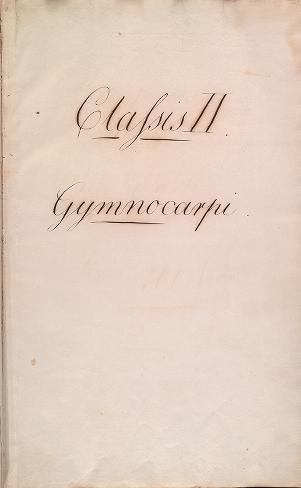 Classis II.
Gymnocarpi.